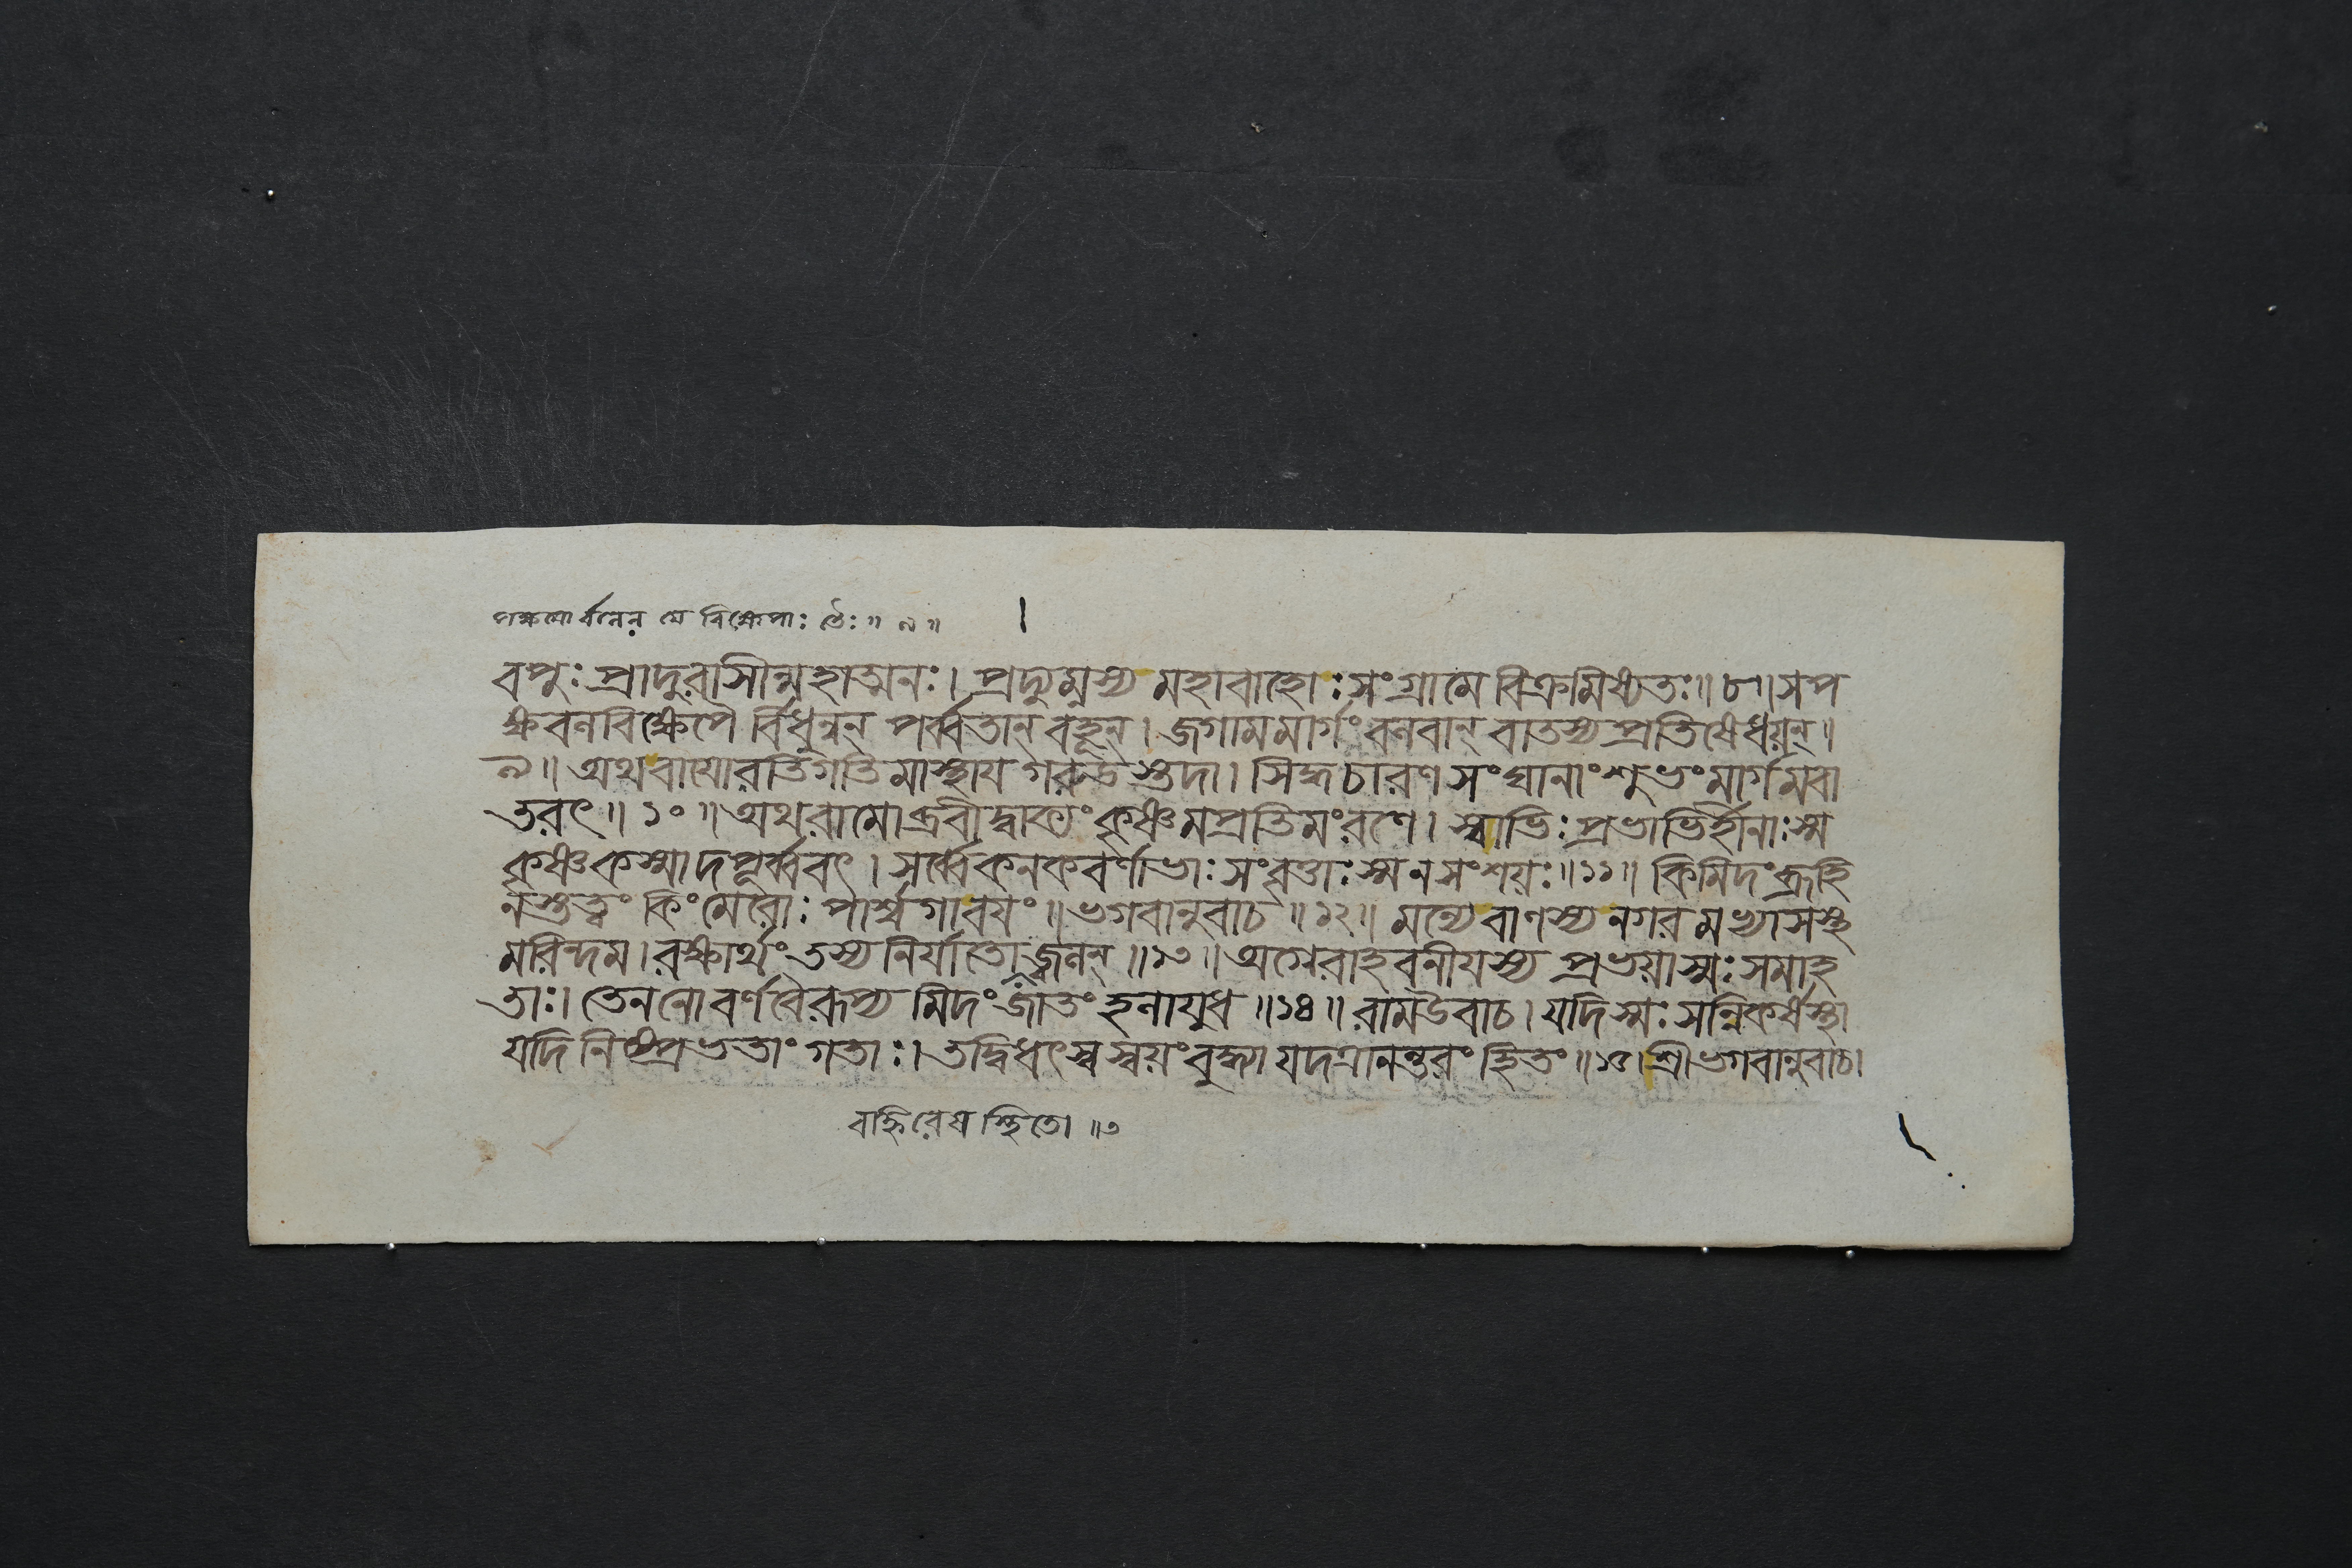 পক্ষয়োর্বলেন যে বিক্ষেপাঃ তৈঃ ॥ ৯ ॥
বপুঃ প্রাদুরাসীন্মহাত্মনঃ। প্রদ্যুম্নস্য মহাবাহোঃ সংগ্রামে বিক্রমিষ্যতঃ॥ ৮॥ সপ
ক্ষবলবিক্ষেপৈ র্বিধুন্বন্ পর্ব্বতান্ বহূন্। জগামমার্গং বলবান্ বাতস্য প্রতিষেধয়ন্॥
৯॥ অথবায়োরতিগতিমাস্থায় গরুড়স্তদা। সিদ্ধচারণ সংঘানাং শুভং মার্গমবা
তরৎ॥ ১০॥ অথরামোব্রবীদ্বাক্যং কৃষ্ণমপ্রতিমং রণে। স্বাভিঃ প্রভাভির্হীনাঃ স্ম
কৃষ্ণ কস্মাদপূর্ব্ববৎ। সর্ব্বে কনকবর্ণাভাঃ সংবৃত্তাঃ স্ম ন সংশয়ঃ॥১১॥ কিমিদং ব্রূহি
নস্তত্ত্বং কিং মেরোঃ পার্শ্বগাবয়ং॥ ভগবানুবাচ॥১২॥ মন্যে বাণস্য নগর মভ্যাসস্থ
মরিন্দম। রক্ষার্থং তস্য নির্যাতো জ্বলন্॥১৩॥ অগ্নেরাহবনীয়স্য প্রভয়াস্মঃ সমাহ
তাঃ। তেন নো বর্ণবৈরূপ্য মিদং জাতং হলায়ুধ॥১৪॥ রামউবাচ। যদিস্মঃ সন্নিকর্ষস্থা
যদি নিষ্প্রভতাং গতাঃ। তদ্বিধৎস্ব স্বয়ং বুদ্ধ্যা যদত্রানন্তরং হিতং॥১৫। শ্রীভগবানুবাচ।
বহ্নিরেষ স্থিতো ॥৩